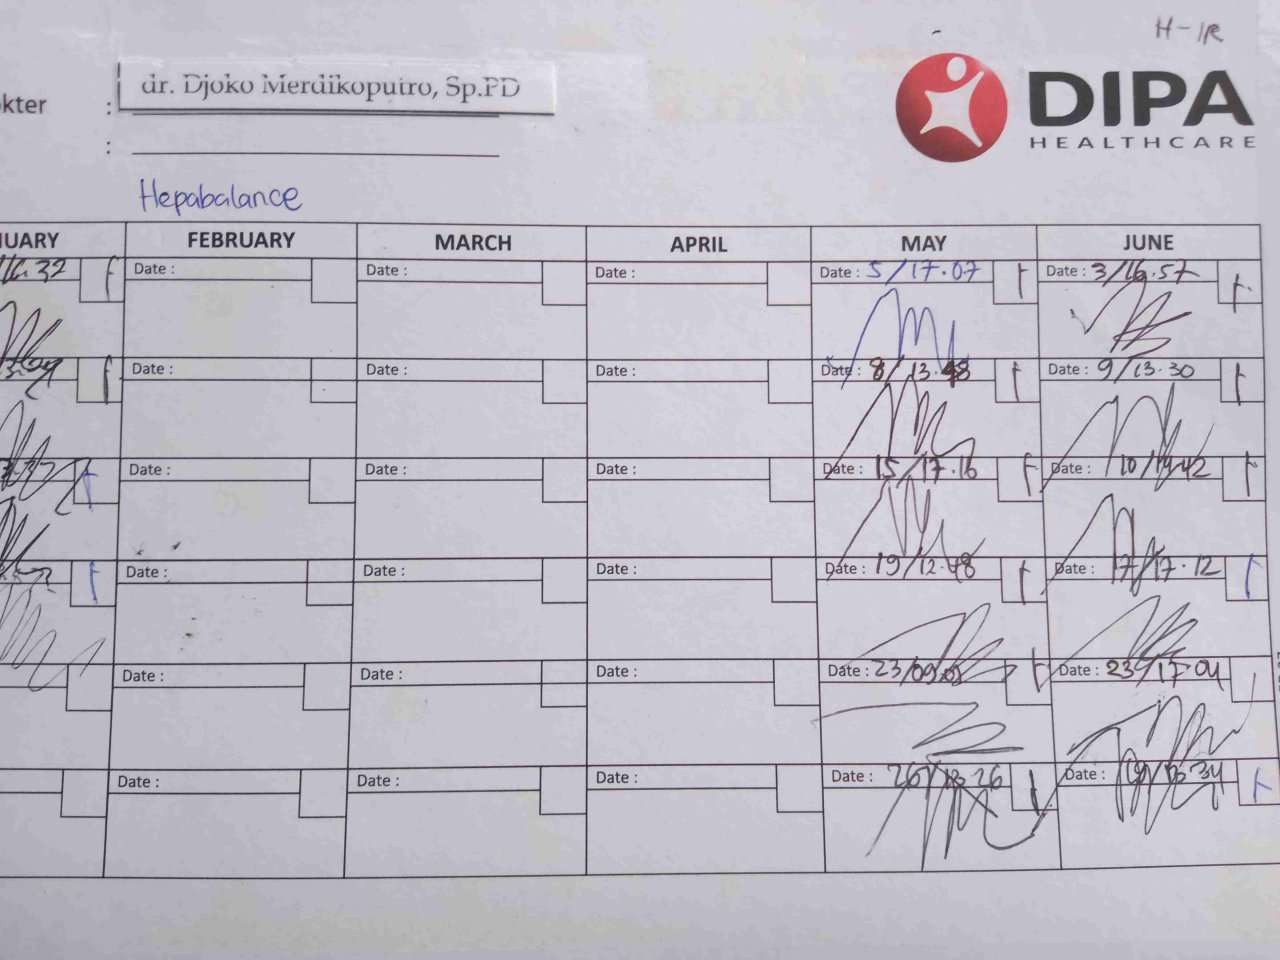 H-1R
dr. Djoko Merdikoputro, Sp.PD
DIPA
HEALTHCARE
kter :
:
Hepabalance
UARY FEBRUARY MARCH APRIL MAY JUNE
16.32 Date : Date : Date : Date : 5/17.07 Date : 3/16.57
Date : Date : Date : Date : 8/13.48 Date : 9/13.30
Date : Date : Date : Date : 15/17.16 Date : 10/14.42
Date : Date : Date : Date : 19/12.48 Date : 17/17.12
Date : Date : Date : Date : 23/09.08 Date : 23/17.04
Date : Date : Date : Date : 26/13.26 Date :